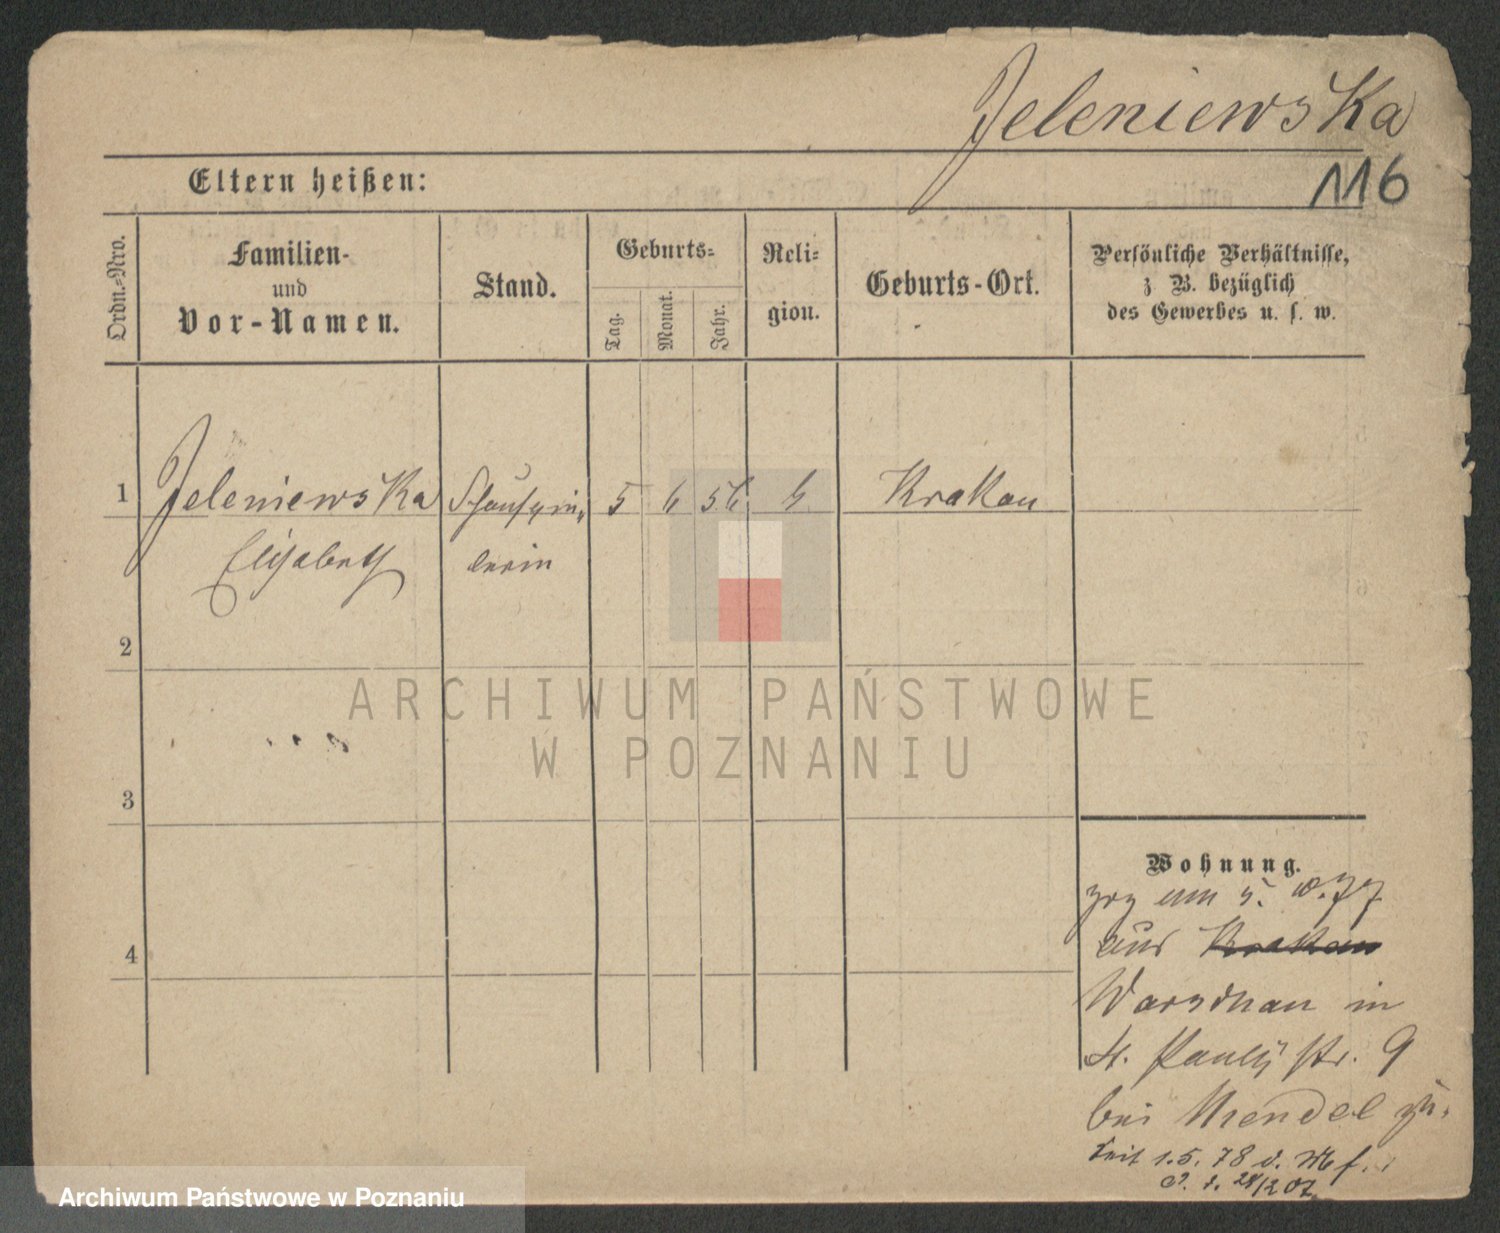 Jeleniewska
116
Eltern heißen:
Ordn.-Nro.
Familien-
und
Vor-Namen.
Stand.
Geburts-
Tag.
Monat.
Jahr.
Reli-
gion.
Geburts-Ort.
Persönliche Verhältnisse,
z B. bezüglich
des Gewerbes u. s. w.
1
Jeleniewska
Elisabeth
Schauspie-
lerin
5
6
56
k
Krakau
2
3
4
Wohnung.
zog am 5. 10. 77
aus Krakau
Warschau in
St. Pauly str. 9
bei Mendel zu.
seit 1.5. 78
ARCHIWUM PAŃSTWOWE
W POZNANIU
Archiwum Państwowe w Poznaniu